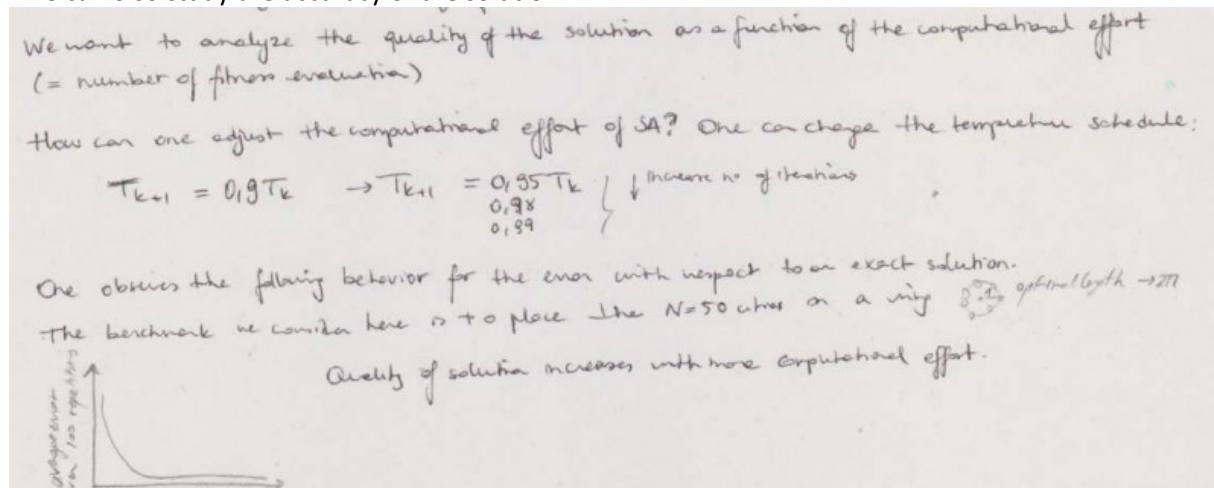 We want to analyze the quality of the solution as a function of the computational effort
(= number of fitness evaluation)
How can one adjust the computational effort of SA? One can change the temperature schedule:
T_{k+1} = 0,9 T_k → T_{k+1} = 0,95 T_k } ↓ increase n° of iterations
0,98
0,99
One observes the following behavior for the error with respect to an exact solution.
The benchmark we consider here is to place the N=50 cities on a ring optimal length → 2π
Quality of solution increases with more computational effort.
average error
over 100 repetitions